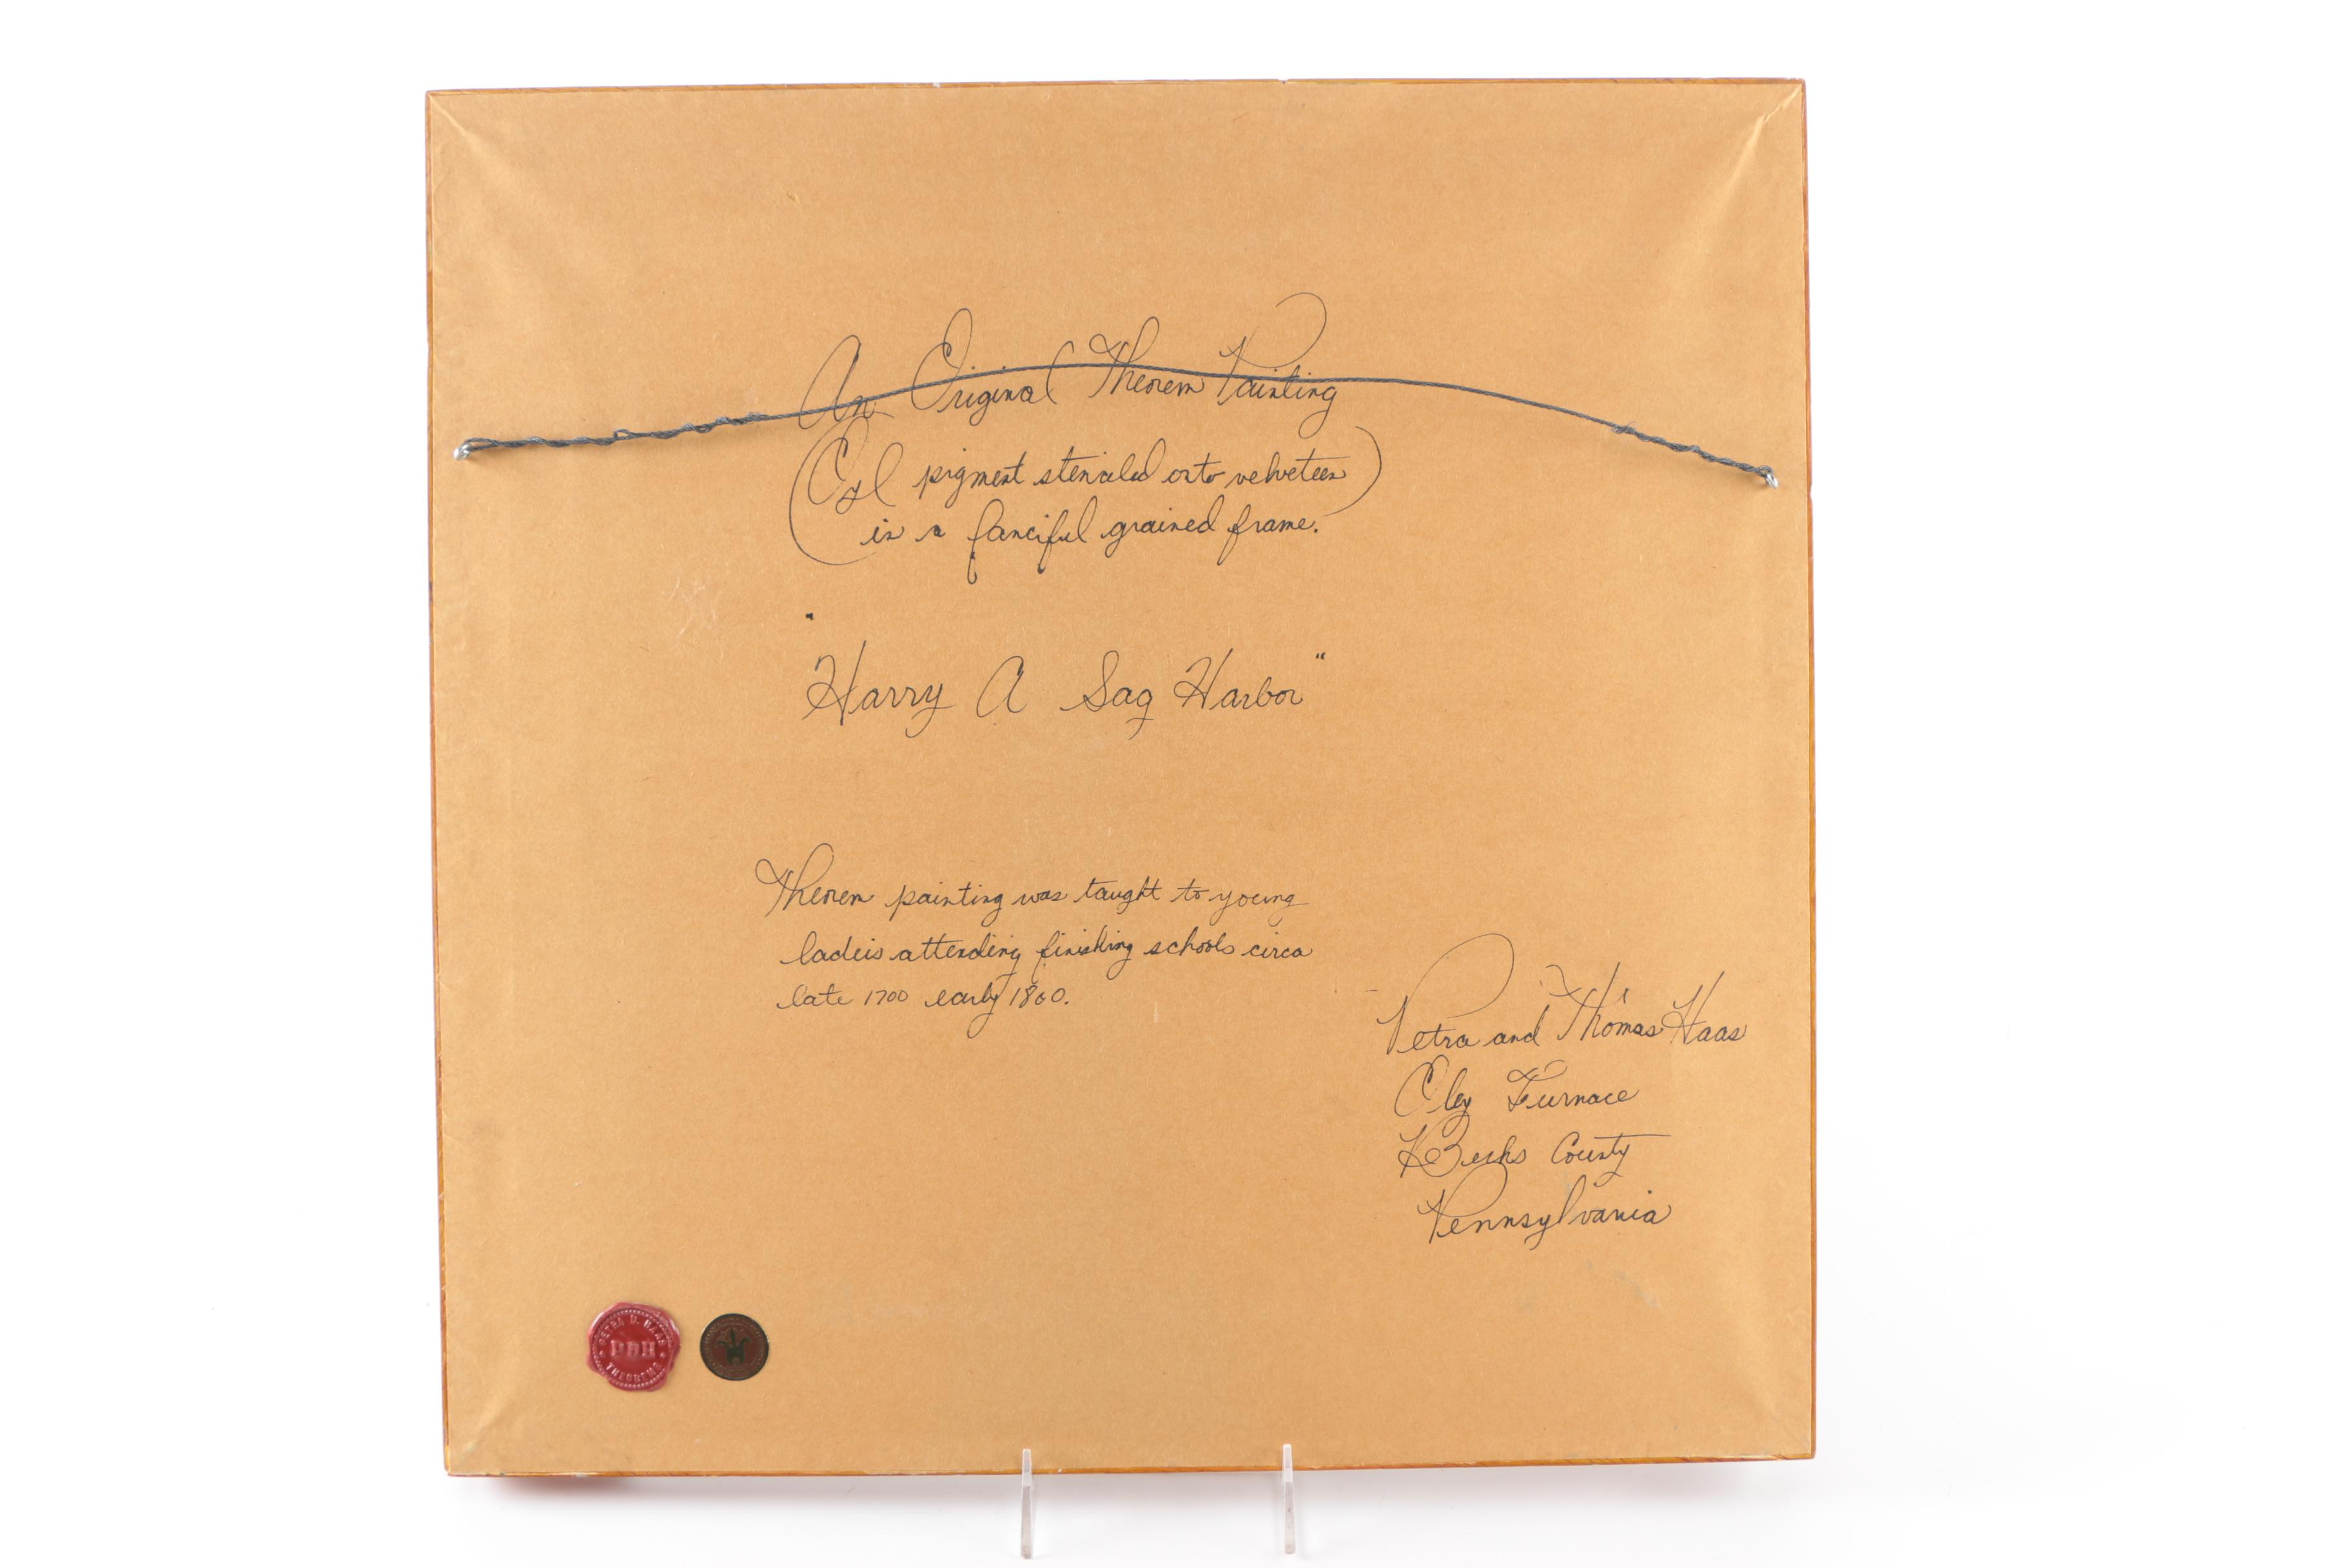 An Original Theorem Painting
(Oil pigment stenciled onto velveteen
in a fanciful grained frame.)
"Harry A Sag Harbor"
Theorem painting was taught to young
ladeis attending finishing schools circa
late 1700 early 1800.
Petra and Thomas Haas
Oley Furnace
Berks County
Pennsylvania
PETRA D. HAAS
PDH
THEOREMS